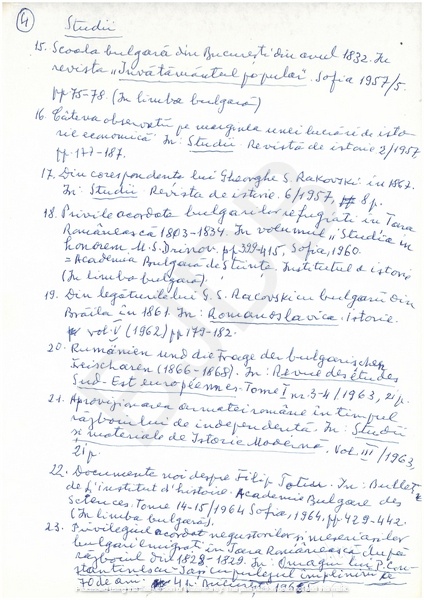 4
Studii
15. Scoala bulgară din București din anul 1832. In
revista „Învățământul popular". Sofia 1957/5.
pp 75-78. (In limba bulgară)
16. Câteva observații pe marginea unei lucrări de isto-
rie economică. In: Studii. Revistă de istorie 2/1957
pp. 177-187.
17. Din corespondența lui Gheorghe S. Rakovski in 1867.
In: Studii Revista de istorie. 6/1957, 8 p.
18. Privile acordate bulgarilor refugiati in Tara
Românească 1803-1834. In volumul "Studia in
honorem M. S. Drinov. pp 399-415, Sofia, 1960.
= Academia Bulgară de Științe. Institutul de istorie
(In limba bulgară).
19. Din legăturile lui G. S. Racovski cu bulgarii din
Brăila in 1861. In: Romanoslavica. Istorie.
vol. V (1962) pp 179-182.
20. Rumänien und die Frage der bulgarischen
Freischaren (1866-1868). In: Revue des études
Sud-Est européennes. Tome I nr. 3-4/1963, 21 p.
21. Aprovizionarea armatei române in timpul
războiului de independență. In: Studii
și materiale de Istorie Modernă. Vol. III/1963,
21 p.
22. Documente noi despre Filip Totiu. In: Bullet.
de l'institut d'histoire. Academie Bulgare des
Sciences. Tome 14-15/1964 Sofia, 1964, pp. 429-442.
(In limba bulgară).
23. Privilegiul acordat negustorilor și meseriașilor
bulgari emigrați in Tara Românească după
războiul din 1828-1829. In: Omagiu lui P. Con-
stantinescu-Iași cu prilejul implinirii a
70 de ani. București, 1965